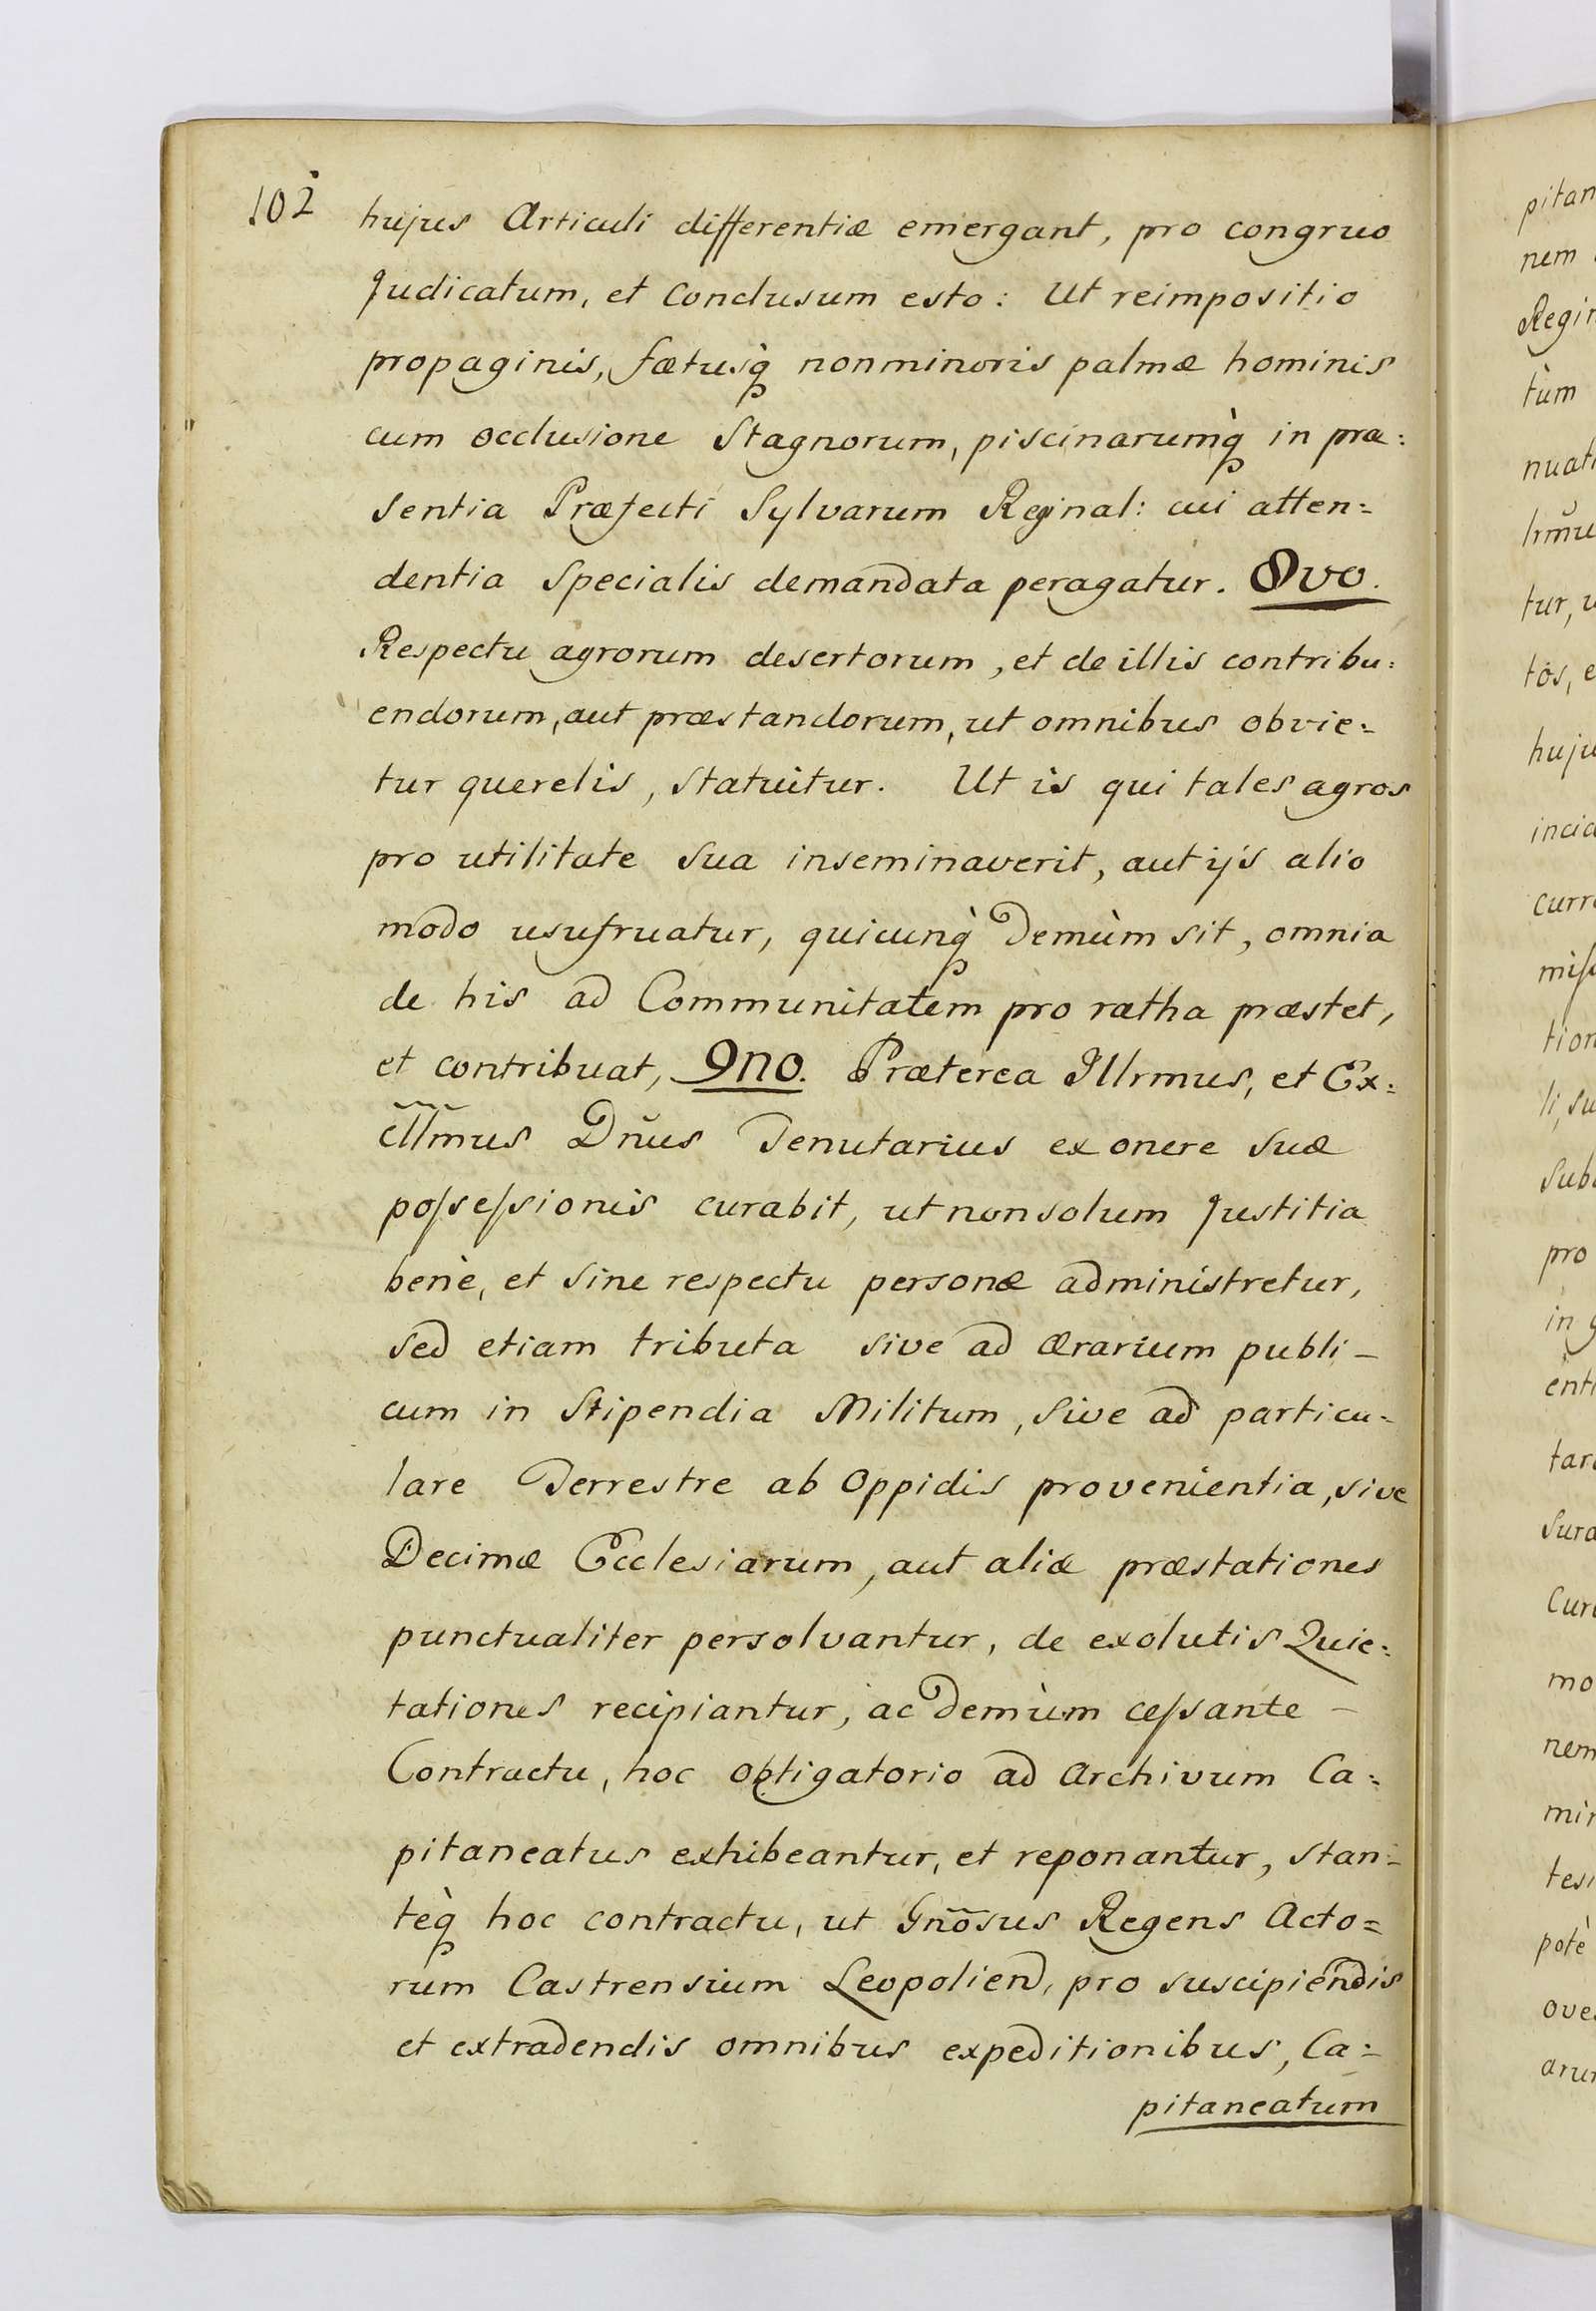 102
hujus Articuli differentiæ emergant, pro congruo
Judicatum, et Conclusum esto: Ut reimpositio
propaginis, fætusq̀ nonminoris palmæ hominis
cum occlusione Stagnorum, piscinarumq̀ in præ:
sentia Præfecti Sylvarum Reginal: cui atten:
dentia Specialis demandata peragatur. 8vo.
Respectu agrorum desertorum, et de illis contribu:
endorum, aut præstandorum, ut omnibus obvie:
tur querelis, Statuitur. Ut is qui tales agros
pro utilitate sua inseminaverit, aut ijs alio
modo usufruatur, quicunq̀ Demùm sit, omnia
de his ad Communitatem pro ratha præstet,
et contribuat, 9no. Præterea Illrmus, et Ex:
c̃ll̃mus Dñus Tenutarius ex onere suæ
poſseſsionis curabit, ut nonsolum Justitia
benè, et Sine respectu personæ administretur,
sed etiam tributa sive ad ærarium publi-
cum in Stipendia Militum, Sive ad particu-
lare Terrestre ab Oppidis provenientia, sive
Decimæ Ecclesiarum, aut aliæ præstationes
punctualiter persolvantur, de exolutis Quie:
tationes recipiantur, ac Demùm ceſsante -
Contractu, hoc obligatorio ad Archivum Ca:
pitaneatus exhibeantur, et reponantur, stan:
teq̀ hoc contractu, ut Gñõsus Regens Acto=
rum Castrensium Leopolien, pro suscipiendis
et extradendis omnibus expeditionibus, Ca:
pitaneatum
pitan
nem
Regin
tùm
nuati
tur, u
tos, e
huju
incid
curr
miſ
tion
li, su
Sub
pro
in g
enti
tar
Sura
Cur
mo
nem
min
tes
potè
ove
arum